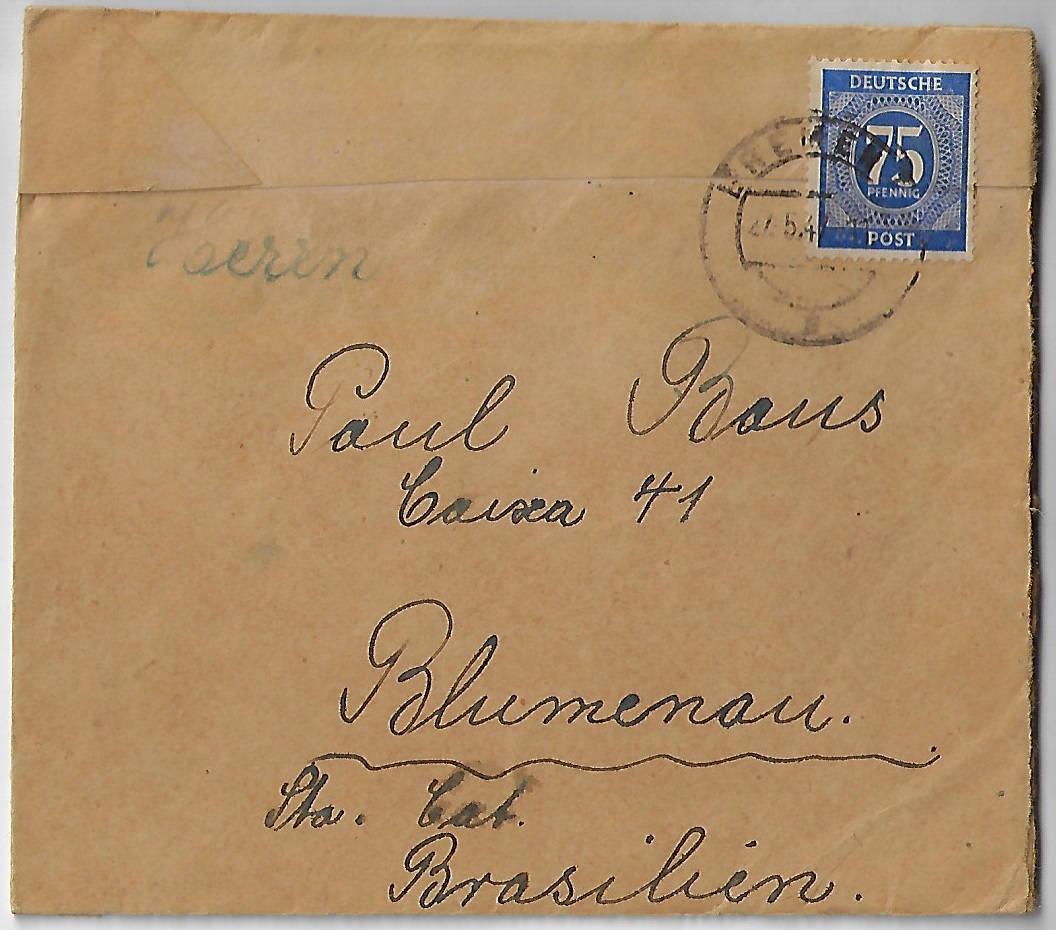 DEUTSCHE
75
PFENNIG
POST
BREMEN
5.4
Herrn
Paul Baus
Caixa 41
Blumenau.
Sta. Cat.
Brasilien.